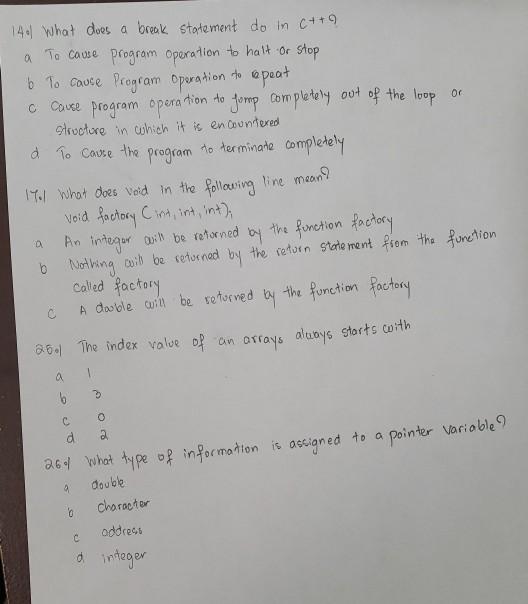 14.) What does a break statement do in C++?
a To cause program operation to halt or stop
b To cause Program Operation to repeat
c Cause program operation to jump completely out of the loop or
structure in which it is encountered
d To Cause the program to terminate completely
17.) What does void in the following line mean?
void factory (int, int, int);
a An integer will be returned by the function factory
b Nothing will be returned by the return statement from the function
called factory
c A double will be returned by the function factory
25.) The index value of an arrays always starts with
a 1
b 3
c 0
d 2
26.) What type of information is assigned to a pointer variable?
a double
b character
c address
d integer